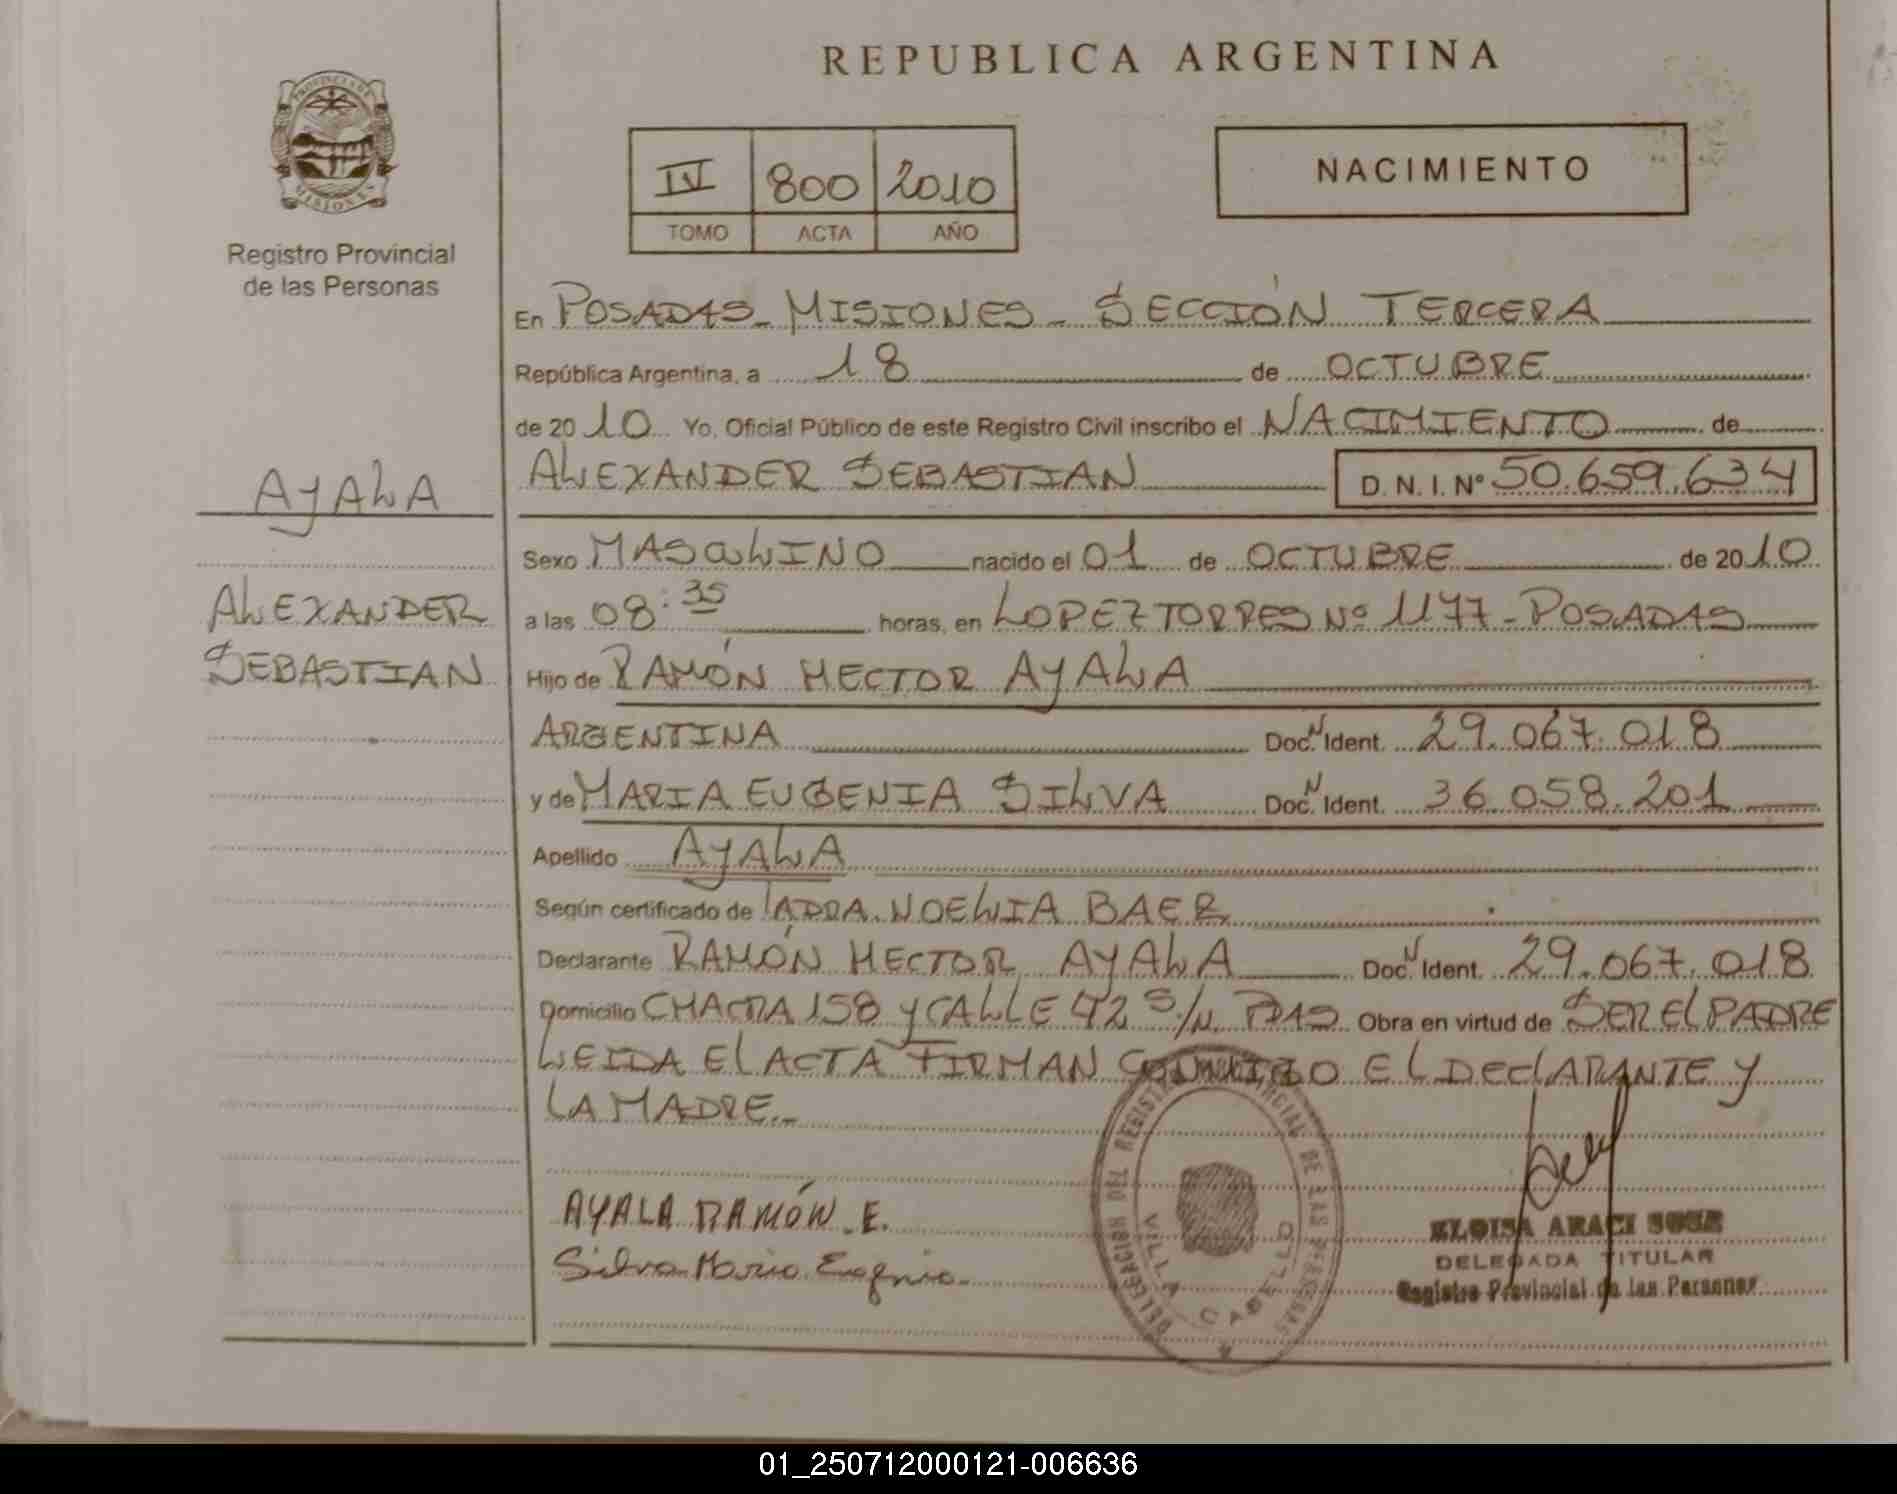 REPUBLICA ARGENTINA
PROVINCIA DE MISIONES
Registro Provincial
de las Personas
IV 800 2010
TOMO ACTA AÑO
NACIMIENTO
En POSADAS_MISIONES_SECCIÓN TERCERA
República Argentina, a 18 de OCTUBRE
de 2010 Yo, Oficial Público de este Registro Civil inscribo el NACIMIENTO de
ALEXANDER SEBASTIAN D.N.I.N° 50.659.634
AYALA
ALEXANDER
SEBASTIAN
Sexo MASCULINO nacido el 01 de OCTUBRE de 2010
a las 08:35 horas, en LOPEZ TORRES Nº 1177-POSADAS
Hijo de RAMÓN HECTOR AYALA
ARGENTINA Doc. N Ident. 29.067.018
y de MARIA EUGENIA SILVA Doc. N Ident. 36.058.201
Apellido AYALA
Según certificado de NOELIA BAER
Declarante RAMÓN HECTOR AYALA Doc. N Ident. 29.067.018
Domicilio CHACRA 158 y CALLE 42 S/N. PDAS Obra en virtud de SER EL PADRE
LEIDA EL ACTA FIRMAN CONMIGO EL DECLARANTE Y
LA MADRE._
AYALA RAMÓN.E.
Silva Maria Eugenia.
DELEGACION DEL REGISTRO PROVINCIAL DE LAS PERSONAS
VILLA CABELLO
ELOISA ARACI SOSA
DELEGADA TITULAR
Registro Provincial de las Personas
01_250712000121-006636